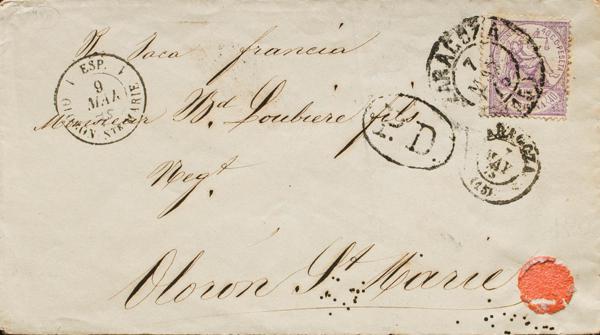 Por Jaca francia
Monsieur Bd Loubière fils
Negt
Oloron Ste Marie
ESP.
9
MAI
OLORON-STE-MARIE
P.D.
ZARAGOZA
7
ZARAGOZA
MAY
(15)